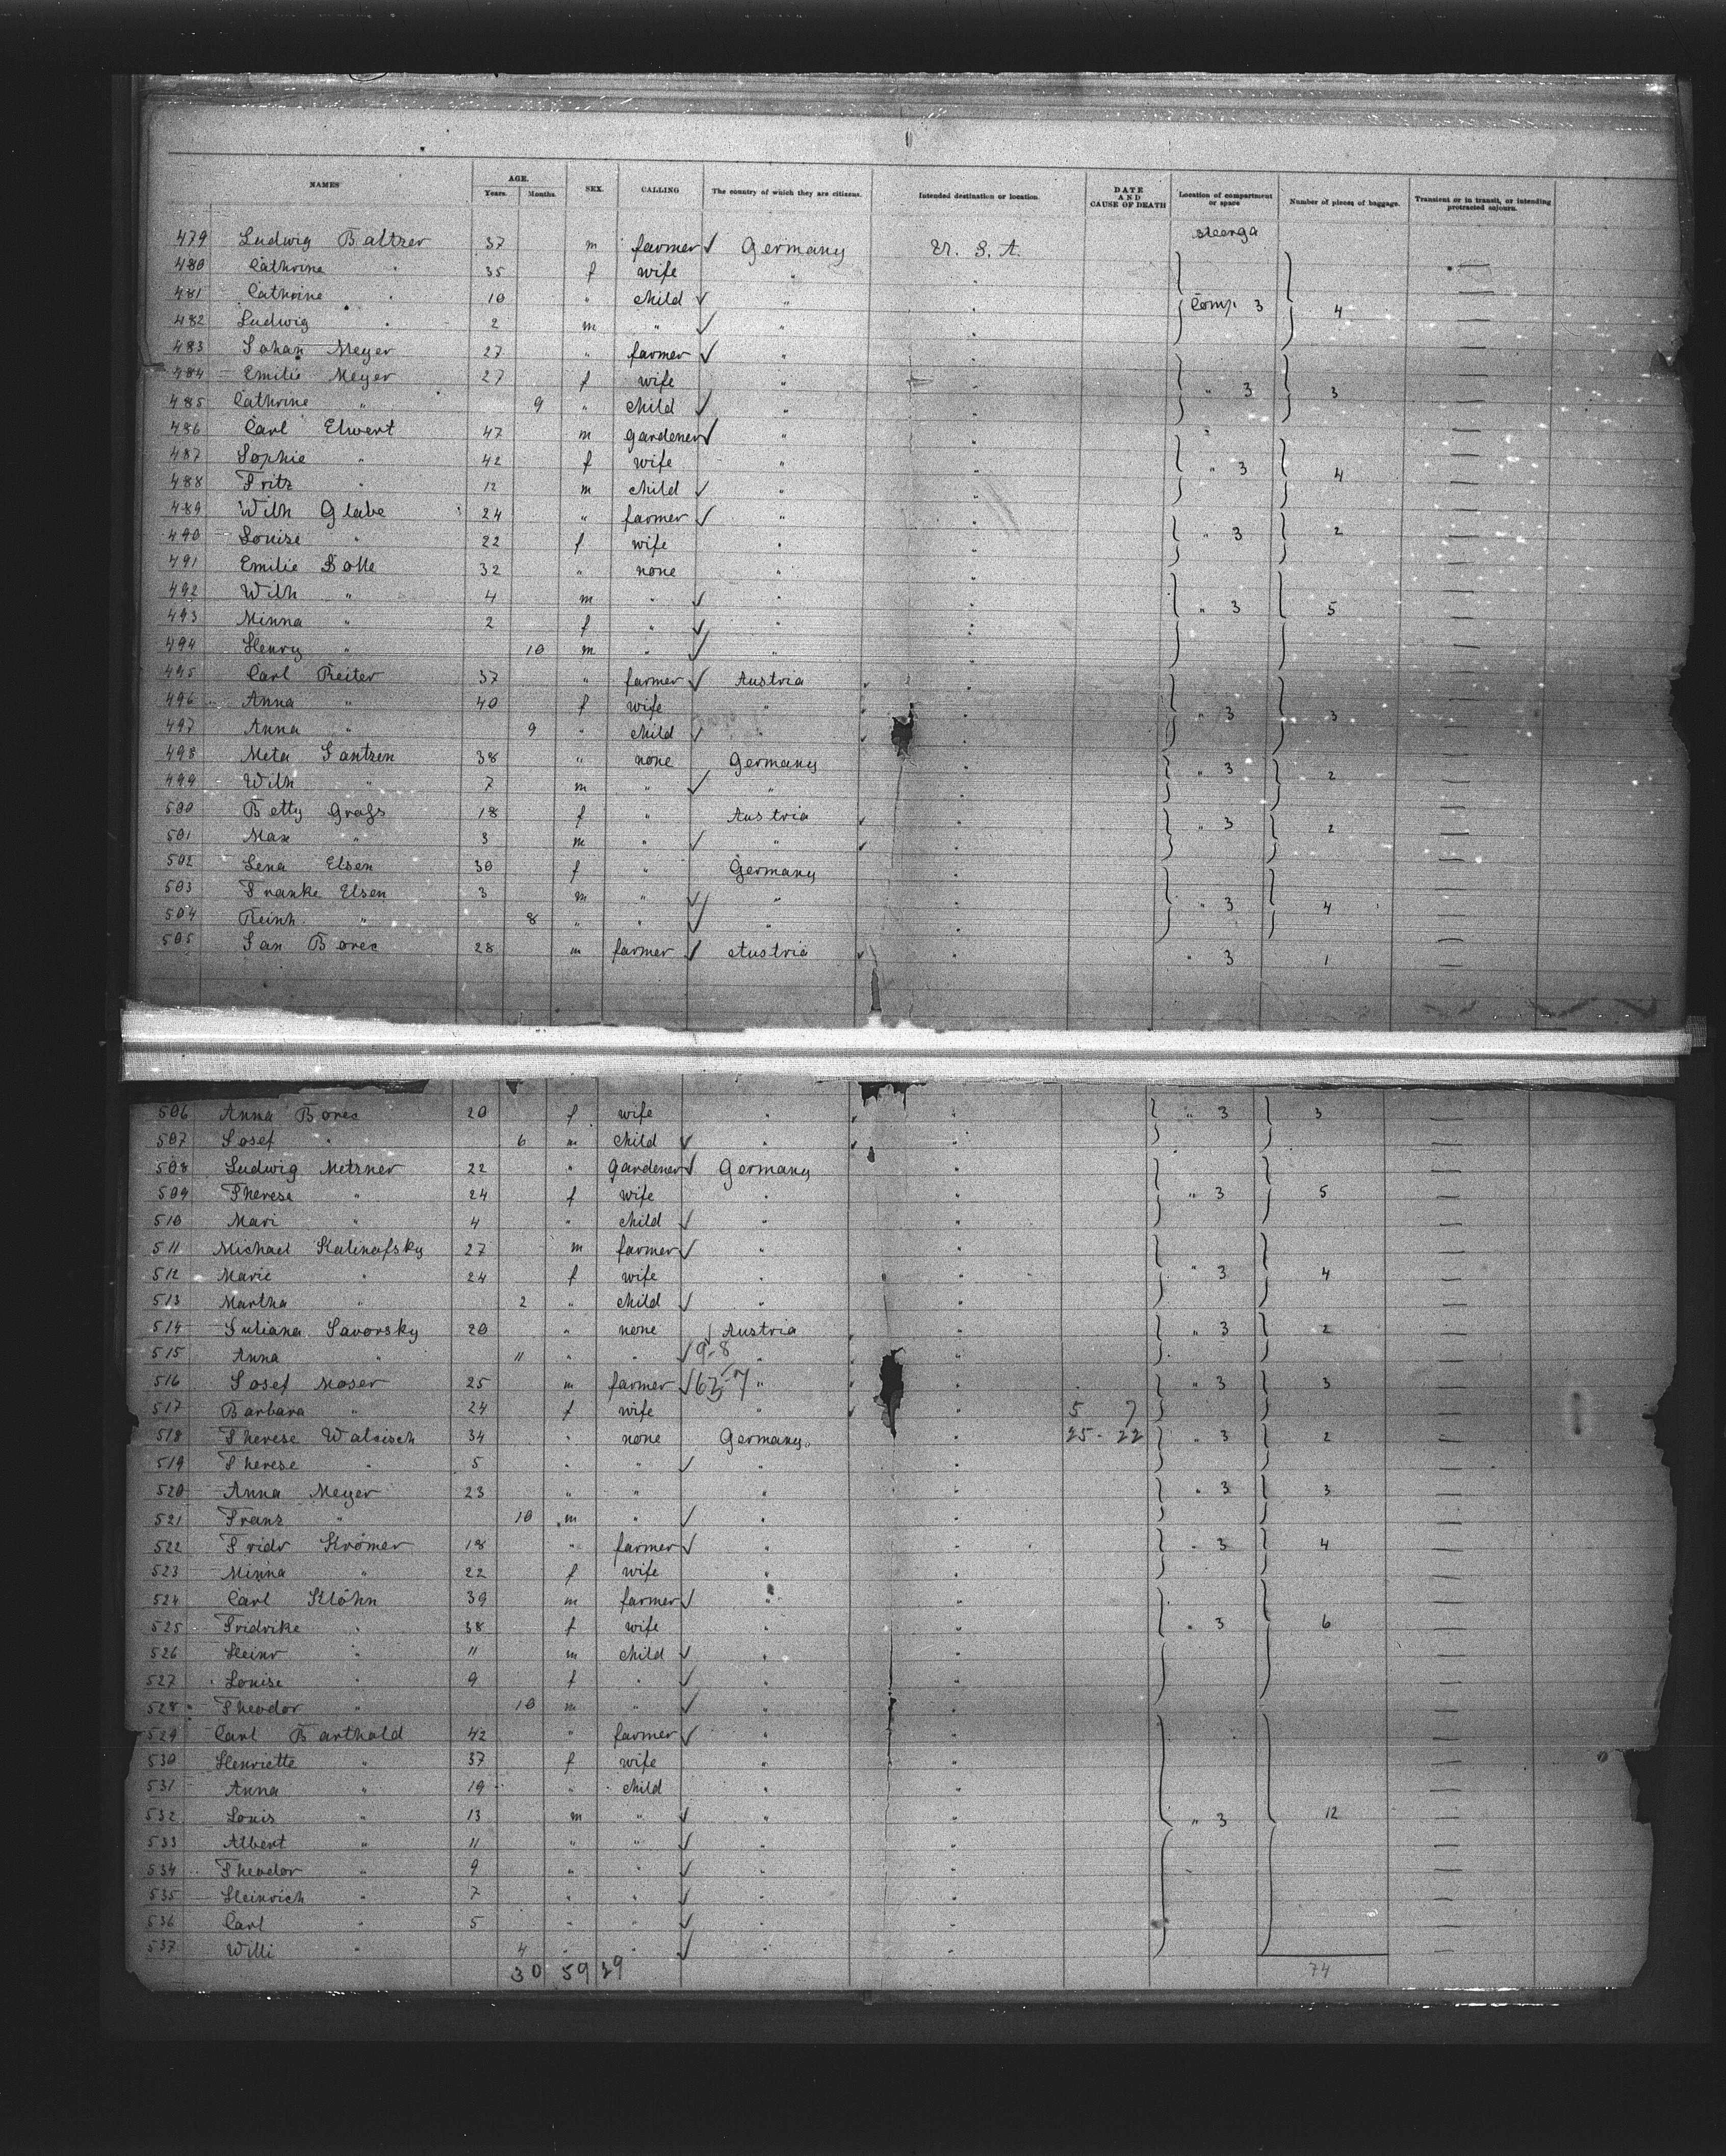 NAMES AGE. Years. Months. SEX. CALLING The country of which they are citizens. Intended destination or location. DATE AND CAUSE OF DEATH Location of compartment or space Number of pieces of baggage. Transient or in transit, or intending protracted sojourn.
479 Ludwig Baltzer 37 m farmer ✓ Germany U. S. A. steerage —
480 Cathrine " 35 f wife " " —
481 Cathrine " 10 " child ✓ " " Comp 3 4 —
482 Ludwig " 2 m " ✓ " " —
483 Johan Meyer 27 " farmer ✓ " " —
484 Emilie Meyer 27 f wife " " " 3 3 —
485 Cathrine " 9 " child ✓ " " —
486 Carl Elwert 47 m gardener ✓ " " —
487 Sophie " 42 f wife " " " 3 4 —
488 Fritz " 12 m child ✓ " " —
489 Wilh Glabe 24 " farmer ✓ " " —
490 Louise " 22 f wife " " " 3 2 —
491 Emilie Bolle 32 " none " " —
492 Wilh " 4 m " ✓ " " " 3 5 —
493 Minna " 2 f " ✓ " " —
494 Henry " 10 m " ✓ " " —
495 Carl Reiter 37 " farmer ✓ Austria " —
496 Anna " 40 f wife " " " 3 3 —
497 Anna " 9 " child ✓ " " —
498 Meta Jantzen 38 " none Germany " " 3 2 —
499 Wilh " 7 m " ✓ " " —
500 Betty Grafs 18 f " Austria " " 3 2 —
501 Max " 3 m " ✓ " " —
502 Lena Elsen 30 f " Germany " —
503 Franke Elsen 3 m " ✓ " " " 3 4 —
504 Reinh. " 8 " " ✓ " " —
505 Jan Borec 28 m farmer ✓ Austria " " 3 1 —
506 Anna Borec 20 f wife " " " 3 3 —
507 Josef " 6 m child ✓ " " —
508 Ludwig Metzner 22 " gardener ✓ Germany " —
509 Therese " 24 f wife " " " 3 5 —
510 Mari " 4 " child ✓ " " —
511 Michael Kalinafsky 27 m farmer ✓ " " —
512 Marie " 24 f wife " " " 3 4 —
513 Martha " 2 " child ✓ " " —
514 Juliana Javorsky 20 " none ✓ Austria " " 3 2 —
515 Anna " 11 " " ✓ 9-8 " " —
516 Josef Moser 25 m farmer ✓ 63-7 " " " 3 3 —
517 Barbara " 24 f wife " " 5 7 —
518 Therese Walsisch 34 " none Germany " 25- 22 " 3 2 —
519 Therese " 5 " " ✓ " " —
520 Anna Meyer 23 " " " " " 3 3 —
521 Franz " 10 m " ✓ " " —
522 Fridr Krömer 18 " farmer ✓ " " " 3 4 —
523 Minna " 22 f wife " " —
524 Carl Klöhn 39 m farmer ✓ " " —
525 Fridrike " 38 f wife " " " 3 6 —
526 Heinr " 11 m child ✓ " " —
527 Louise " 9 f " ✓ " " —
528 Theodor " 10 m " ✓ " " —
529 Carl Barthold 42 " farmer ✓ " " —
530 Henriette " 37 f wife " " —
531 Anna " 19 " child " " —
532 Louis " 13 m " ✓ " " " 3 12 —
533 Albert " 11 " " ✓ " " —
534 Theodor " 9 " " ✓ " " —
535 Heinrich " 7 " " ✓ " " —
536 Carl " 5 " " ✓ " " —
537 Willi " 4 " " ✓ " " —
30 59 29 74